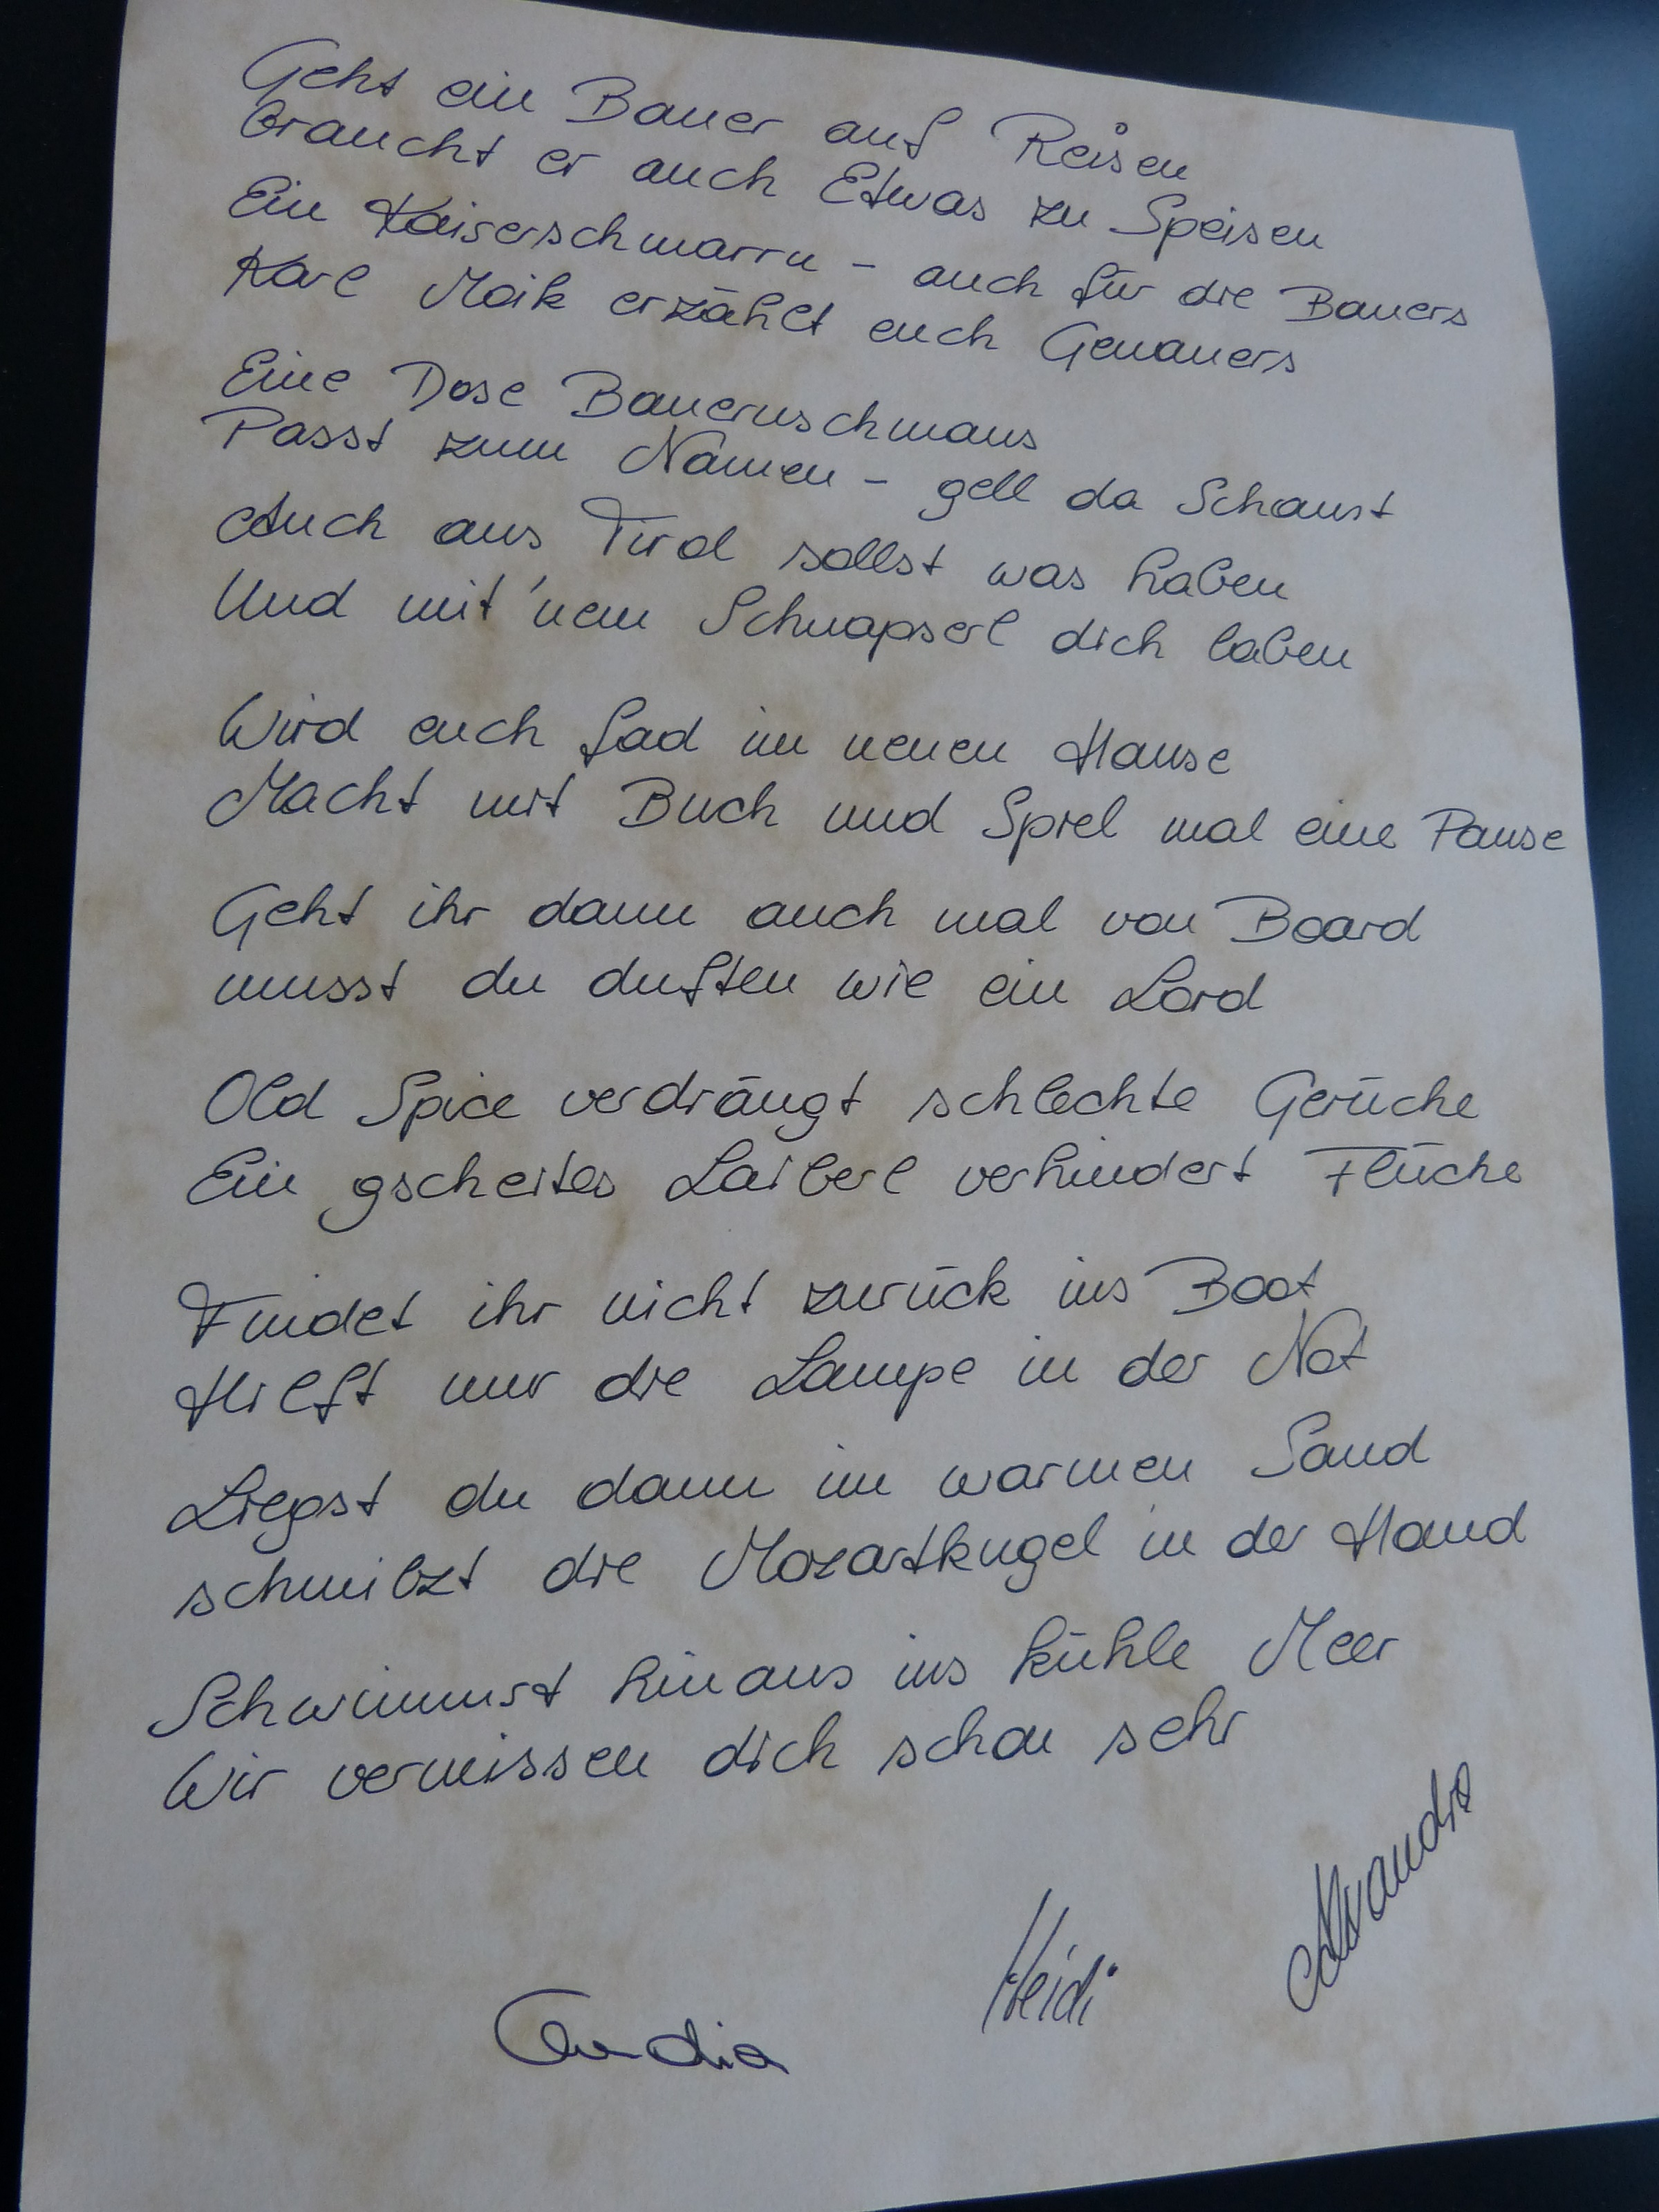 Geht ein Bauer auf Reisen
Braucht er auch Etwas zu Speisen
Ein Kaiserschmarrn - auch für die Bauers
Karl Moik erzählt euch Genauers
Eine Dose Bauernschmaus
Passt zum Namen - gell da Schaust
Auch aus Tirol sollst was haben
Und mit 'nem Schnapserl dich laben
Wird euch fad im neuen Hause
Macht mit Buch und Spiel mal eine Pause
Geht ihr dann auch mal von Board
musst du duften wie ein Lord
Old Spice verdrängt schlechte Gerüche
Ein gscheites Laiberl verhindert Flüche
Findet ihr nicht zurück ins Boot
Hilft nur die Lampe in der Not
Liegst du dann im warmen Sand
schmilzt die Mozartkugel in der Hand
Schwimmst hinaus ins kühle Meer
Wir vermissen dich schon sehr
Heidi
Claudia